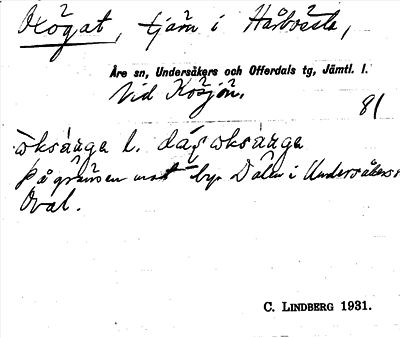 Oxögat, tjärn i Hårbörsta,
Åre sn, Undersåkers och Offerdals tg, Jämtl. l.
Vid Kösjön.
81
På gränsen mot by. Dalen i Undersåkers
Oval.
C. LINDBERG 1931.